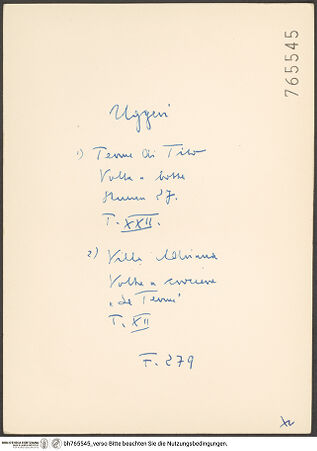 765545
Uggeri
1) Terme di Tito
Volta a botte
27.
T. XXII.
2) Villa Adriana
Volta a crociera
"Le Terme"
T. XII
F. 279
bh765545_verso Bitte beachten Sie die Nutzungsbedingungen.